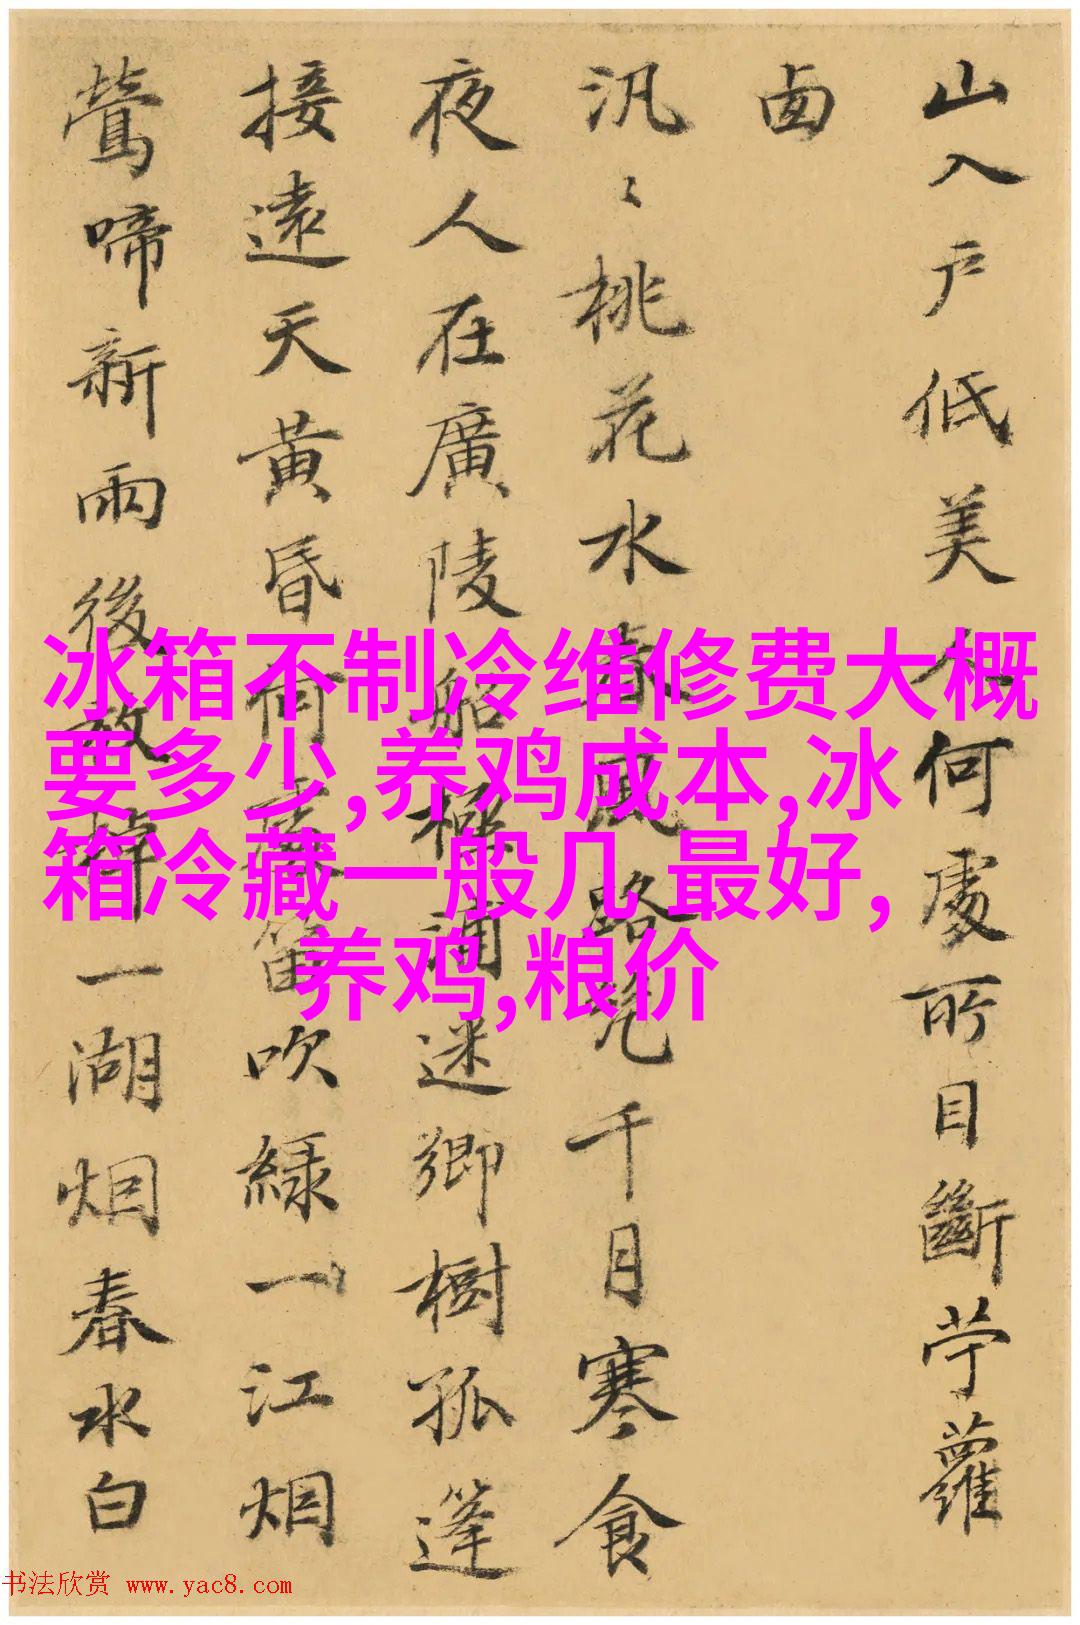 山入户低美人何處所目斷苧蘿
汎〻桃花水春風路千月寒食
夜人在廣陵船極浦迷鄉樹孤篷
接遠天黃昏何處笛吹綠一江烟
鶯啼新雨後放棹一湖烟春水白
冰箱不制冷维修费大概
要多少,养鸡成本,冰
箱冷藏一般几 最好,
养鸡,粮价
书法欣赏 www.yac8.com